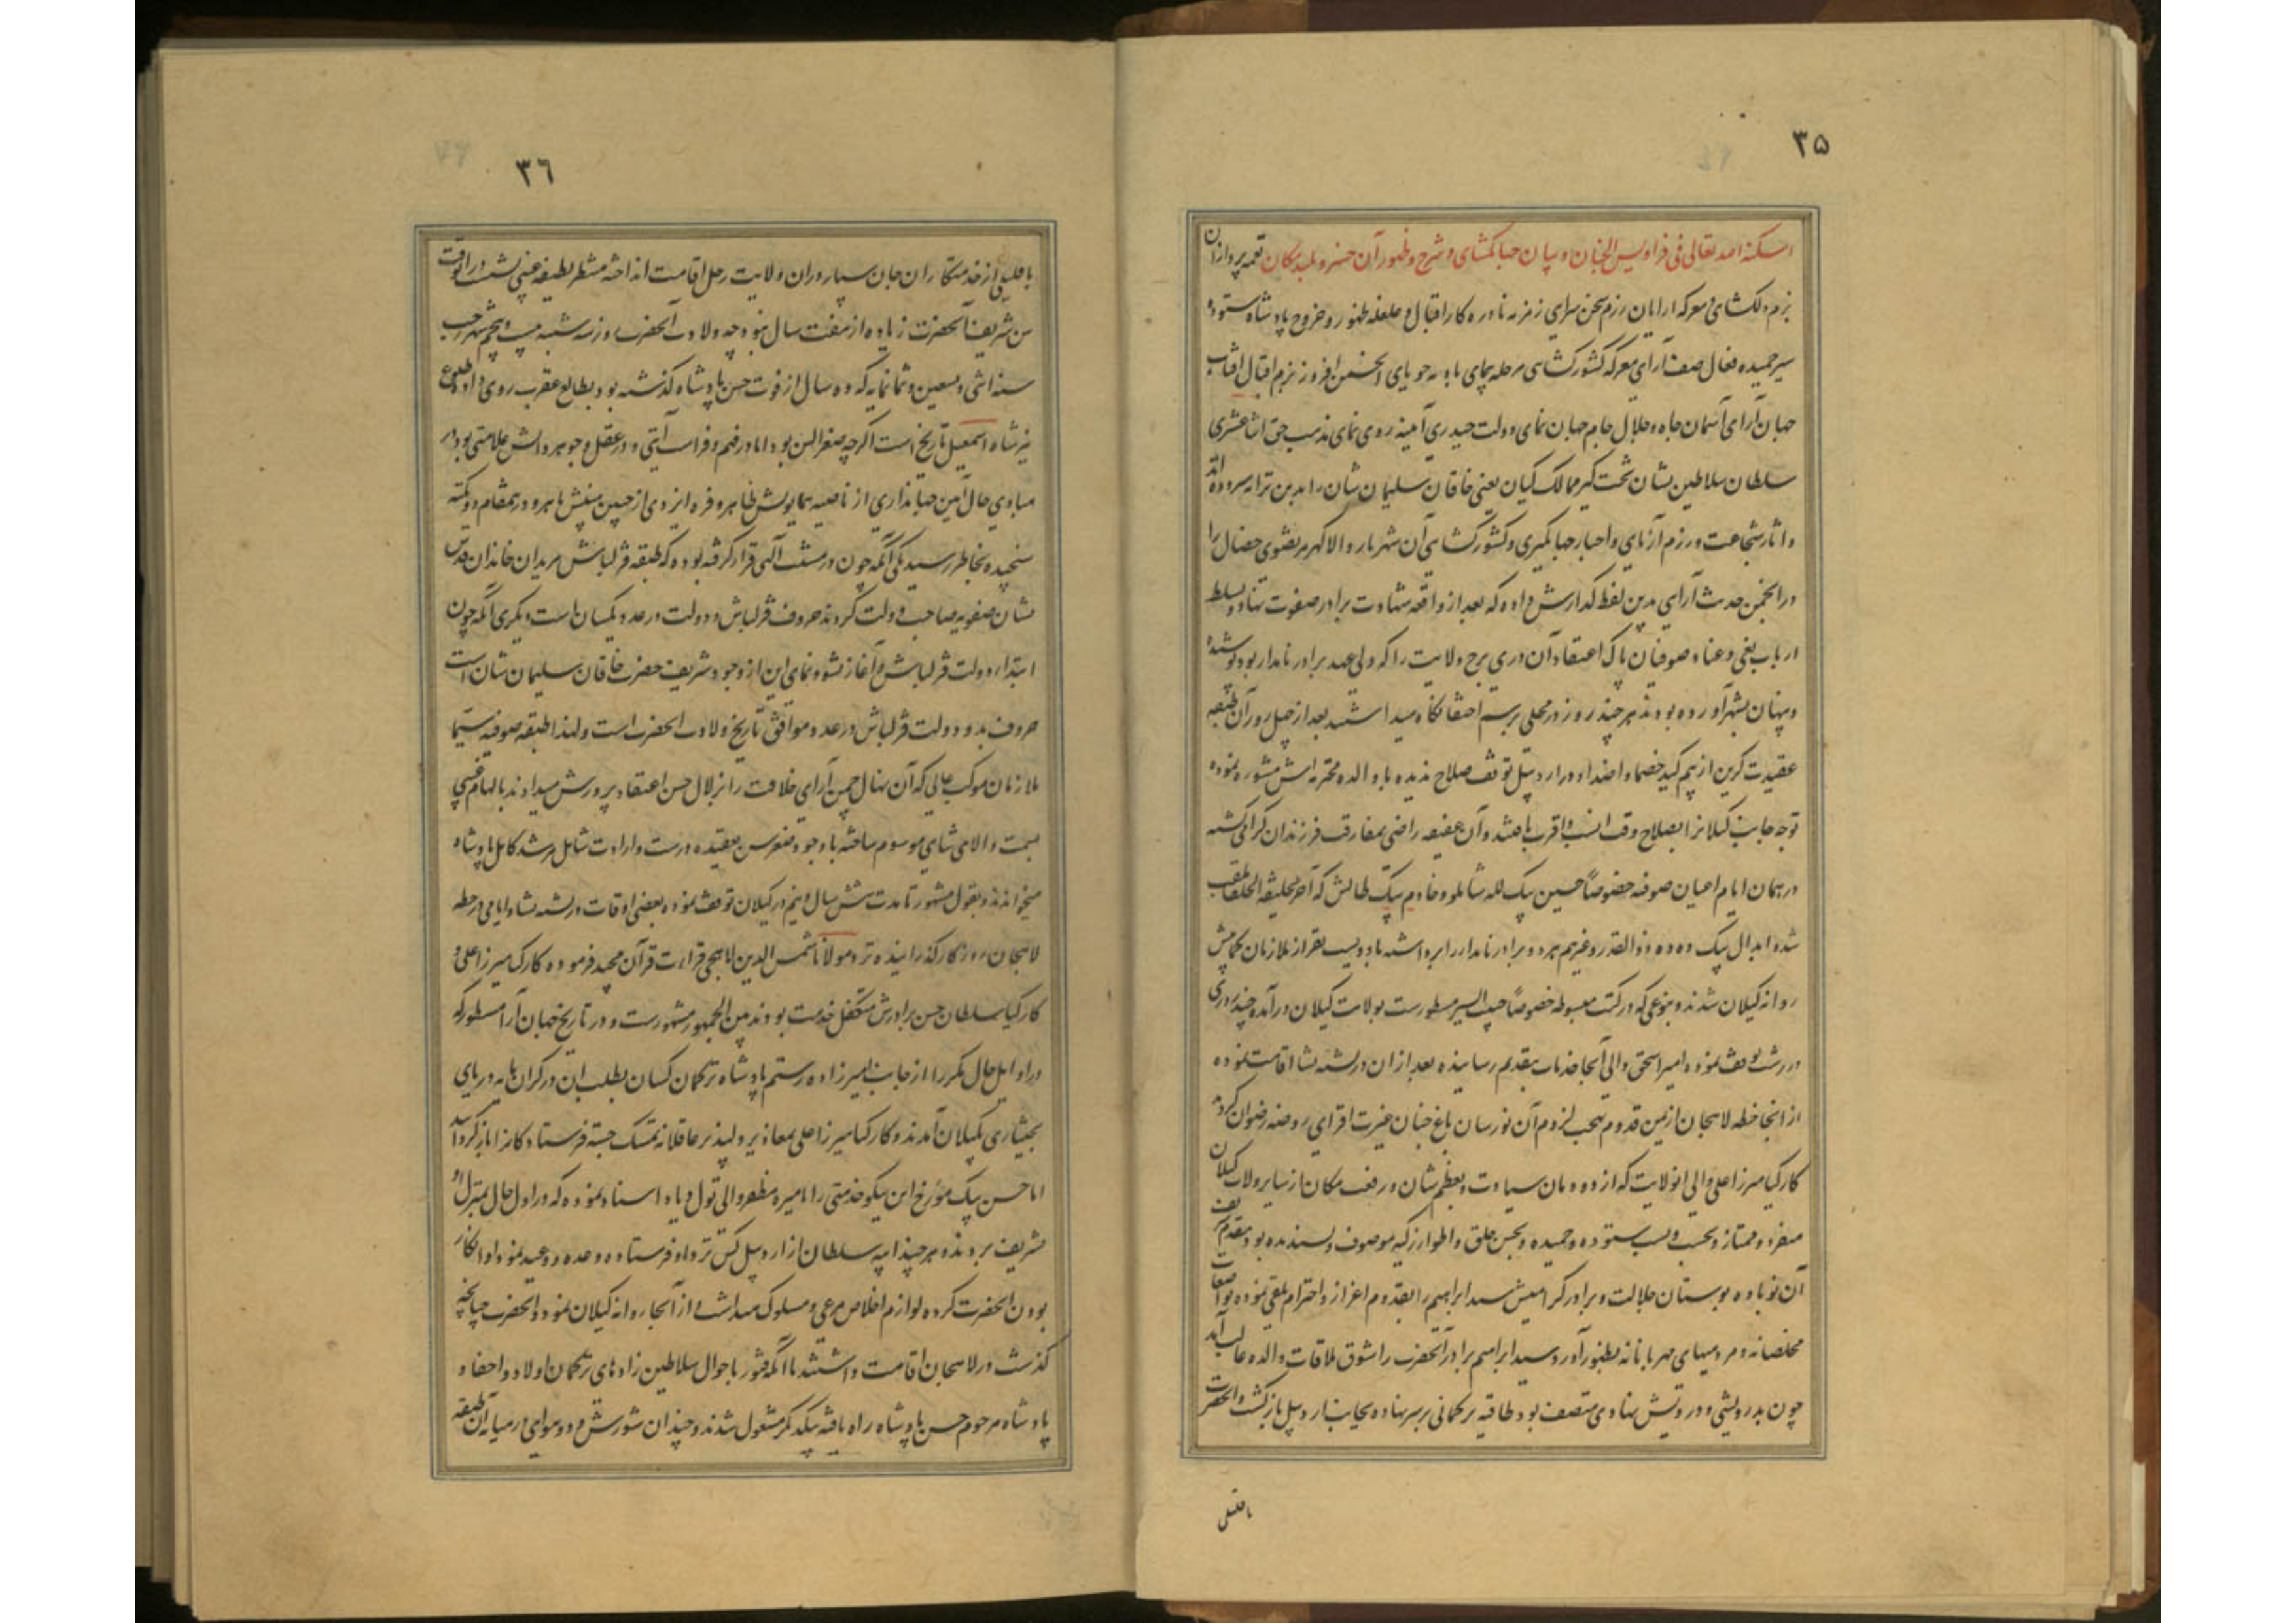 ۳۵
اسکنه الله تعالی فی فرادیس الجنان و بیان جهانگشای و شرح و ظهور آن خسرو بلند مکان نغمه پردازان
بزم دلکشای و معرکه آرایان رزم سخن سرای زمزمه نادره کار اقبال و غلغله ظهور و خروج پادشاه ستوده
سیر حمیده فعال صف آرای معرکه کشورکشای مرحله پیمای بادیه جویای انجمن افروز بزم اقبال آفتاب
جهان آرای آسمان جاه و جلال جام جهان نمای دولت حیدری آمینه روی نمای مذهب حق اثنا عشری
سلطان سلاطین نشان تخت گیر ممالک کیان یعنی خاقان سلیمان شان را بدین ترانه سروده اند
و اثار شجاعت و رزم آزمای و اخبار جهانگیری و کشورکشای آن شهریار والا گهر مرتضوی خصال را
در انجمن حدیث آرایی بدین لفظ گذارش داده که بعد از واقعه شهادت برادر صفوت نهاد و تسلط
ارباب بغی و عناد صوفیان پاک اعتقاد آن دری برج ولایت را که ولی عهد برادر نامدار بود پوشیده
و پنهان بشهر آورده بودند هر چند روز در محلی برسم اختفا نگاه میداشتند بعد از چهل روز آن طبقه
عقیدت گزین از بیم کید خصما و اضداد در اردبیل توقف صلاح ندیده با والده محترمه اش مشوره نموده
توجه جانب گیلانرا بصلاح وقت انسب و اقرب یافتند و آن عفیفه راضی بمفارقت فرزندان گرامی گشته
در همان ایام اعیان صوفیه خصوصاً حسین بیک لله شاملو و خادم بیک طالش که آخر بخلیفة الخلفا ملقب
شده ابدال بیک دده و ذوالقدر و غیرهم هر دو برادر نامدار را برداشته با دویست نفر از ملازمان کمابیش
روانه گیلان شدند و بنوعی که در کتب مبسوطه خصوصاً حبیب السیر مسطورست بولایت گیلان درآمده چند روزی
در رشت توقف نموده امیر اسحق والی آنجا خدمات بتقدیم رسانیده بعد از ان در لشته نشا اقامت نموده
از انجا خطه لاهجان از یمن قدوم بهجت لزوم آن نورسان باغ جنان غیرت افزای روضه رضوان گردید
کارکیا میرزا علی والی انولایت که از دودمان سیادت و بعظم شان و رفعت مکان از سایر ولات گیلان
منفرد و ممتاز و بحسب و نسب ستوده و حمیده و بحسن خلق و اطوار زکیه موصوف و پسندیده بود مقدم شریف
آن نوباوه بوستان جلالت و برادر گرامیش سید ابراهیم را بقدوم اعزاز و احترام تلقی نموده تواضعات
مخلصانه و مردمیهای مهربانانه بظهور آورد و سید ابراهیم برادر آنحضرت را شوق ملاقات والده غالب آمد
چون بدرویشی و درویش نهادی متصف بود طاقیه ترکمانی بر سر نهاده بجانب اردبیل بازگشت و انحضرت
با قلیلی
۳۶
با قلیلی از خدمتکاران جان سپار در ان ولایت رحل اقامت انداخته منتظر لطیفه غیبی نشست در انوقت
سن شریف آنحضرت زیاده از هفت سال نبود چه ولادت آنحضرت روز سه شنبه بیست و پنجم شهر رجب
سنه اثنی و تسعین و ثمانمایه که ده سال از فوت حسن پادشاه گذشته بود بطالع عقرب روی داد طلوع
نیر شاه اسمعیل تاریخ است اگرچه صغر السن بود اما در فهم و فراست آیتی و در عقل و جوهر دانش علامتی بود در
مبادی حال آیین جهانداری از ناصیه همایونش ظاهر و فره ایزدی از جبین مبینش باهر و در ینمقام دو نکته
سنجیده بخاطر رسید یکی آنکه چون در مشیت آلهی قرار گرفته بوده که طبقه قزلباش مریدان خاندان قدس
نشان صفویه صاحب دولت گردند حروف قزلباش و دولت در عدد یکسان است و دیگری آنکه چون
ابتدا دولت قزلباش و آغاز نشو و نمای این از وجود شریف حضرت خاقان سلیمان شان است
حروف بدو دولت قزلباش در عدد موافق تاریخ ولادت انحضرت است ولهذا طبقه صوفیه سیما
ملازمان موکب عالی که آن نهال چمن آرای خلافت را بزلال حسن اعتقاد پرورش میدادند بالهام غیبی
بسمت والا می شاهی موسوم ساخته باوجود صغر سن بعقیده درست و ارادت شامل مرشد کامل پادشاه
میخواندند و بقول مشهور تا مدت شش سال و نیم در گیلان توقف نموده بعضی اوقات در لشته نشا و ایامی در خطه
لاهجان روزگار گذرانیده نزد مولانا شمس الدین لاهجی قراءت قرآن مجید فرموده کارکیا میرزا علی و
کارکیا سلطان حسن برادرش متکفل خدمت بودند بین الجمهور مشهورست و در تاریخ جهان آرا مسطور که
در اوایل حال مکرراً از جانب امیرزاده رستم پادشاه ترکمان کسان بطلب این در گران مایه دریای
بختیاری بگیلان آمدند و کارکیا میرزا علی بمعاذیر دلپذیر عاقلانه تمسک جسته فرستادگانرا بازگردانید
اما حسن بیک مورخ این نیکو خدمتی را بامیره مظفر والی تول و ناو اسناد نموده که در اول حال بمنزل او
تشریف بردند و هر چند ایبه سلطان از اردبیل کس نزد او فرستاده وعده و وعید نمود او انکار
بودن انحضرت کرده لوازم اخلاص مرعی و مسلوک میداشت و از آنجا روانه گیلان نمود و انحضرت چنانچه
گذشت در لاهجان اقامت داشتند تا آنکه فتور باحوال سلاطین زادهای ترکمان اولاد و احفاد
پادشاه مرحوم حسن پادشاه راه یافته بیکدیگر مشغول شدند و چندان شورش و دوهوایی در میانه آن طبقه